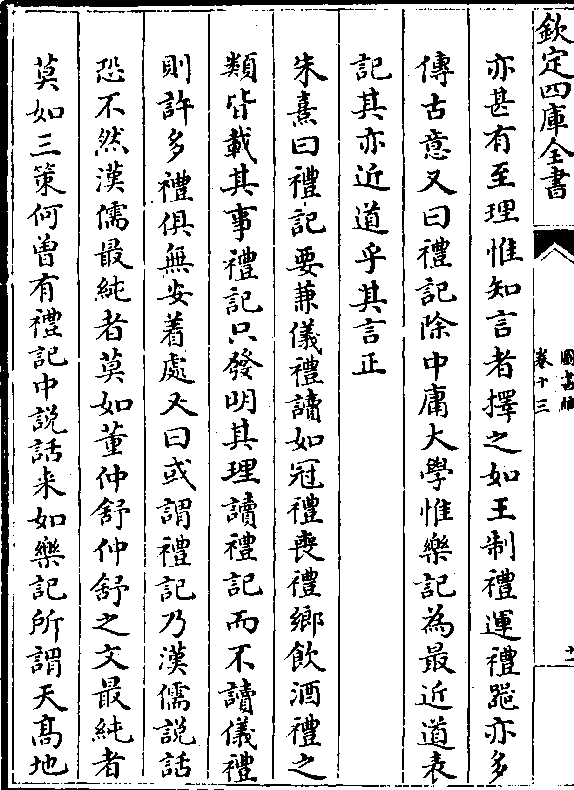 欽定四庫全書
圖書編
卷十三
十一
亦甚有至理惟知言者擇之如王制禮運禮器亦多
傳古意又曰禮記除中庸大學惟樂記為最近道表
記其亦近道乎其言正
朱熹曰禮記要兼儀禮讀如冠禮喪禮鄉飲酒禮之
類皆載其事禮記只發明其理讀禮記而不讀儀禮
則許多禮俱無安着處又曰或謂禮記乃漢儒說話
恐不然漢儒最純者莫如董仲舒仲舒之文最純者
莫如三策何曾有禮記中說話來如樂記所謂天髙地